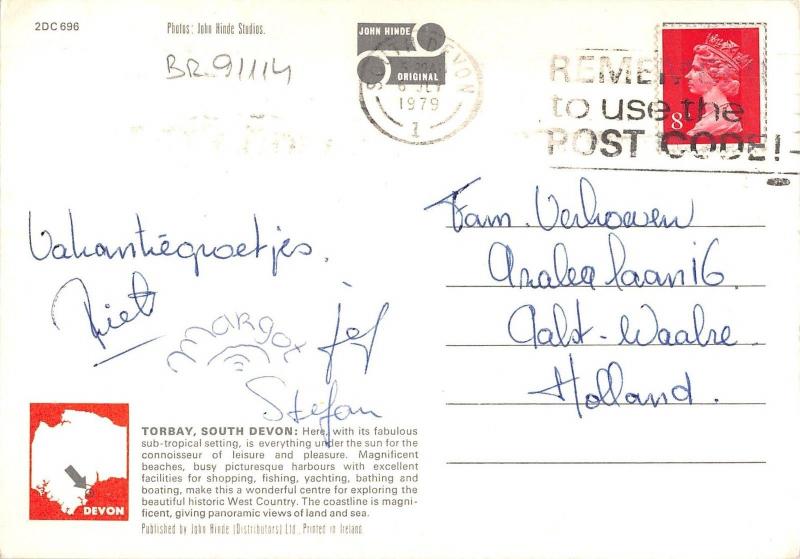 2DC 696
Photos: John Hinde Studios.
BR 91114
JOHN HINDE
ORIGINAL
SOUTH DEVON
1979
REMEMBER
to use the
POST CODE!
8
Vakantiegroetjes.
Riet
Margot
Jef
Stefan
Fam. Verhoeven
Azalealaan 16.
Aalst-Waalre.
Holland.
DEVON
TORBAY, SOUTH DEVON: Here, with its fabulous
sub-tropical setting, is everything under the sun for the
connoisseur of leisure and pleasure. Magnificent
beaches, busy picturesque harbours with excellent
facilities for shopping, fishing, yachting, bathing and
boating, make this a wonderful centre for exploring the
beautiful historic West Country. The coastline is magni-
ficent, giving panoramic views of land and sea.
Published by John Hinde (Distributors) Ltd., Printed in Ireland.